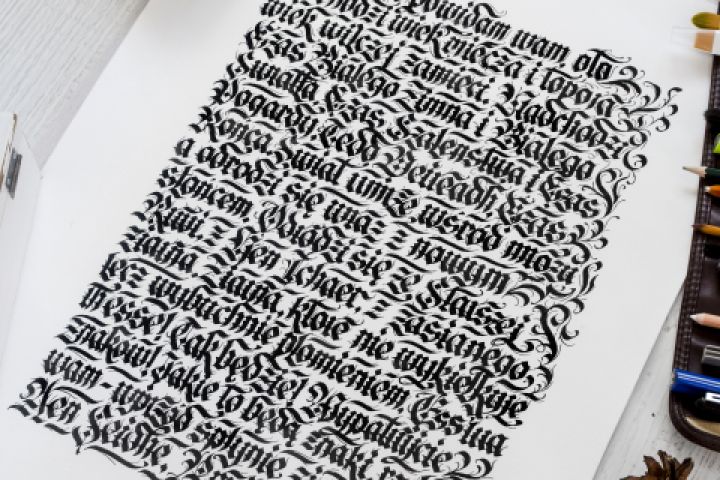 powiadam wam oto
wiek miecza i topora
wiek wilczej zamieci. Nadchodzi
Czas Białego Zimna i Białego
Światła, Czas Szaleństwa i Czas
Pogardy, Tedd Deireadh, Czas
Końca. Świat umrze wśród mrozu,
a odrodzi się wraz z nowym
słońcem. Odrodzi się ze Starszej
Krwi, z Hen Ichaer, z zasianego
ziarna. Ziarna, które nie wykiełkuje
lecz wybuchnie płomieniem. Ess'tua
th esse! Tak będzie! Wypatrujcie
znaków! Jakie to będą znaki
wam - wpierw spłynie
Aen Seidhe,